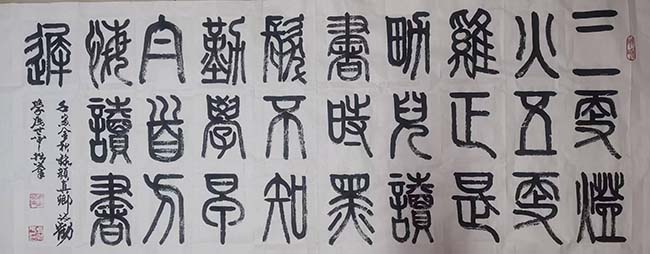 三更燈
火五更
雞正是
男兒讀
書時黑
髮不知
勤學早
白首方
悔讀書
遲
壬寅金秋錄顏真卿詩勸
學